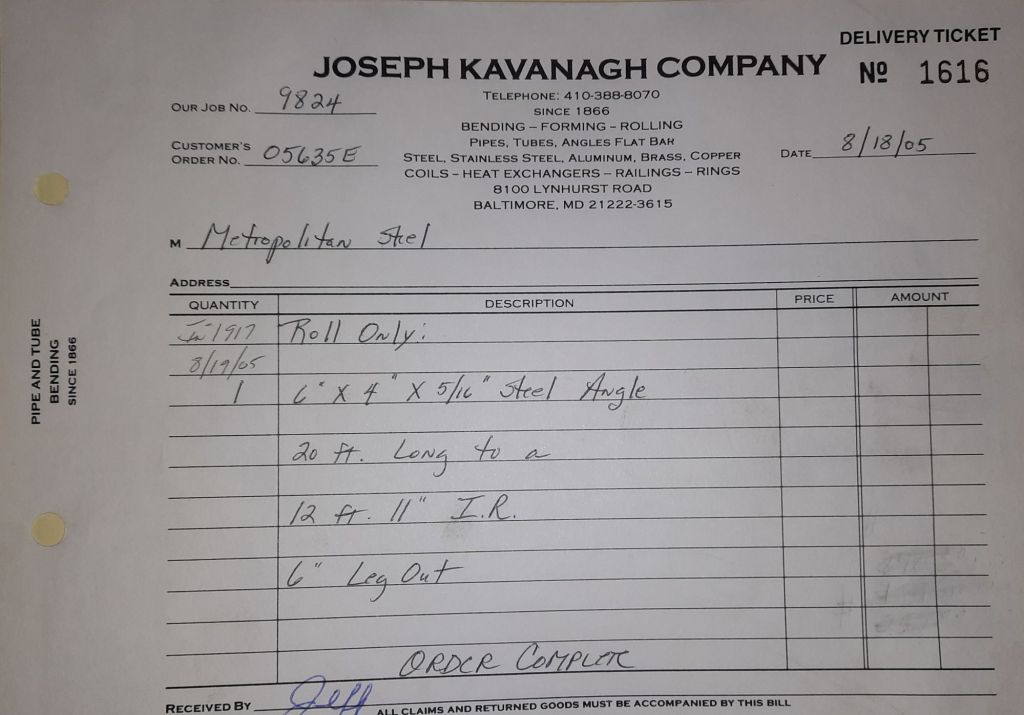 DELIVERY TICKET
JOSEPH KAVANAGH COMPANY
Nº 1616
TELEPHONE: 410-388-8070
SINCE 1866
BENDING – FORMING – ROLLING
PIPES, TUBES, ANGLES FLAT BAR
STEEL, STAINLESS STEEL, ALUMINUM, BRASS, COPPER
COILS – HEAT EXCHANGERS – RAILINGS – RINGS
8100 LYNHURST ROAD
BALTIMORE, MD 21222-3615
OUR JOB NO. 9824
CUSTOMER'S
ORDER NO. 05635E
DATE 8/18/05
M Metropolitan Steel
ADDRESS
QUANTITY DESCRIPTION PRICE AMOUNT
1917 Roll Only:
8/19/05
1 6" X 4" X 5/16" Steel Angle
20 ft. Long to a
12 ft. 11" I.R.
6" Leg Out
ORDER COMPLETE
RECEIVED BY Jeff ALL CLAIMS AND RETURNED GOODS MUST BE ACCOMPANIED BY THIS BILL
PIPE AND TUBE
BENDING
SINCE 1866